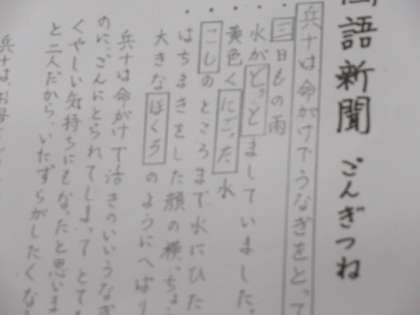 国語新聞 ごんぎつね
兵十は命がけでうなぎをとって
・三日もの雨
・水がどっとましていました。
・黄色くにごった水
・こしのところまで水にひた
・はちまきをした顔の横っちょう
大きなほくろのようにへばり
兵十は命がけで活きのいいうなぎ
のに、ごんにとられてしまってとても
くやしい気持ちにもなったと思いま
と二人だから、いたずらがしたくな
兵十はお